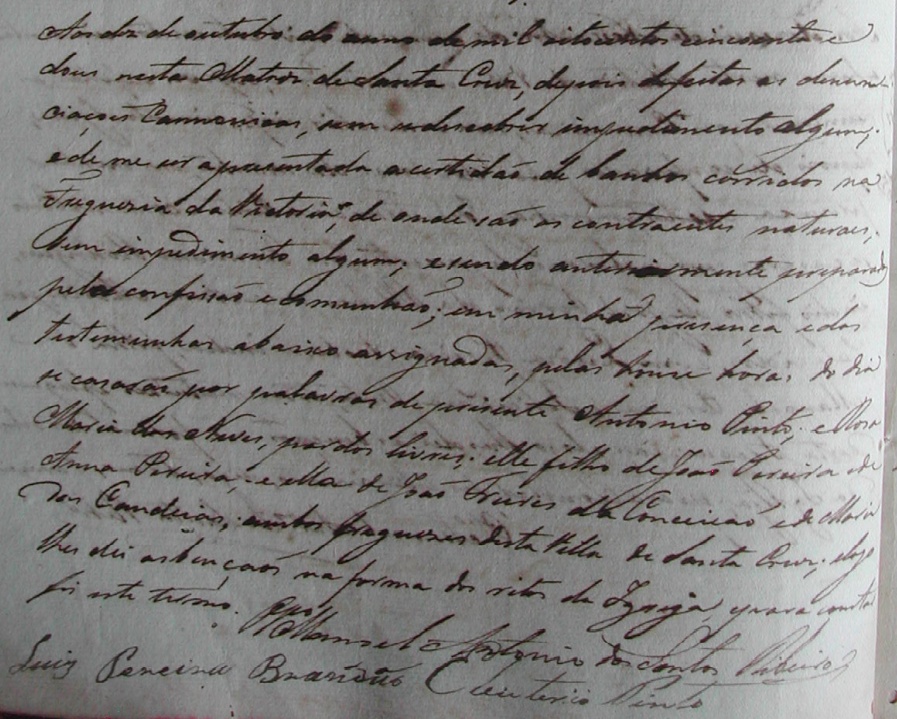 Aos dez de outubro do anno de mil oitocentos cincoenta e
dous nesta Matroz de Santa Cruz, depois de feitas as denun-
ciaçoes Cannonicas, sem se descobrir impedimento algum,
e de me ser apresentada a certidaõ de banhos corridos na
Freguezia da Victoria, de onde saõ os contraentes naturaes,
sem impedimento algum, e sendo anteriormente preparados
pela confissaõ e comunhaõ; em minha presença e das
testemunhas abaixo assignadas, pelas honze horas do dia
se casaraõ por palavras de presente Antonio Pinto, e Rosa
Maria das Neves, pardos livres; elle filho de Joaõ Pereira e de
Anna Pereira, e ella de Joaõ Freires da Conceicaõ e de Maria
das Candeias, ambos freguezes desta Villa de Santa Cruz, e logo
lhes dei as bençaõs na forma do ritos da Igreja, e para constar
fiz este termo.
Manoel Antonio dos Santos Ribeiro
Luiz Pereira Brandaõ
Pinto